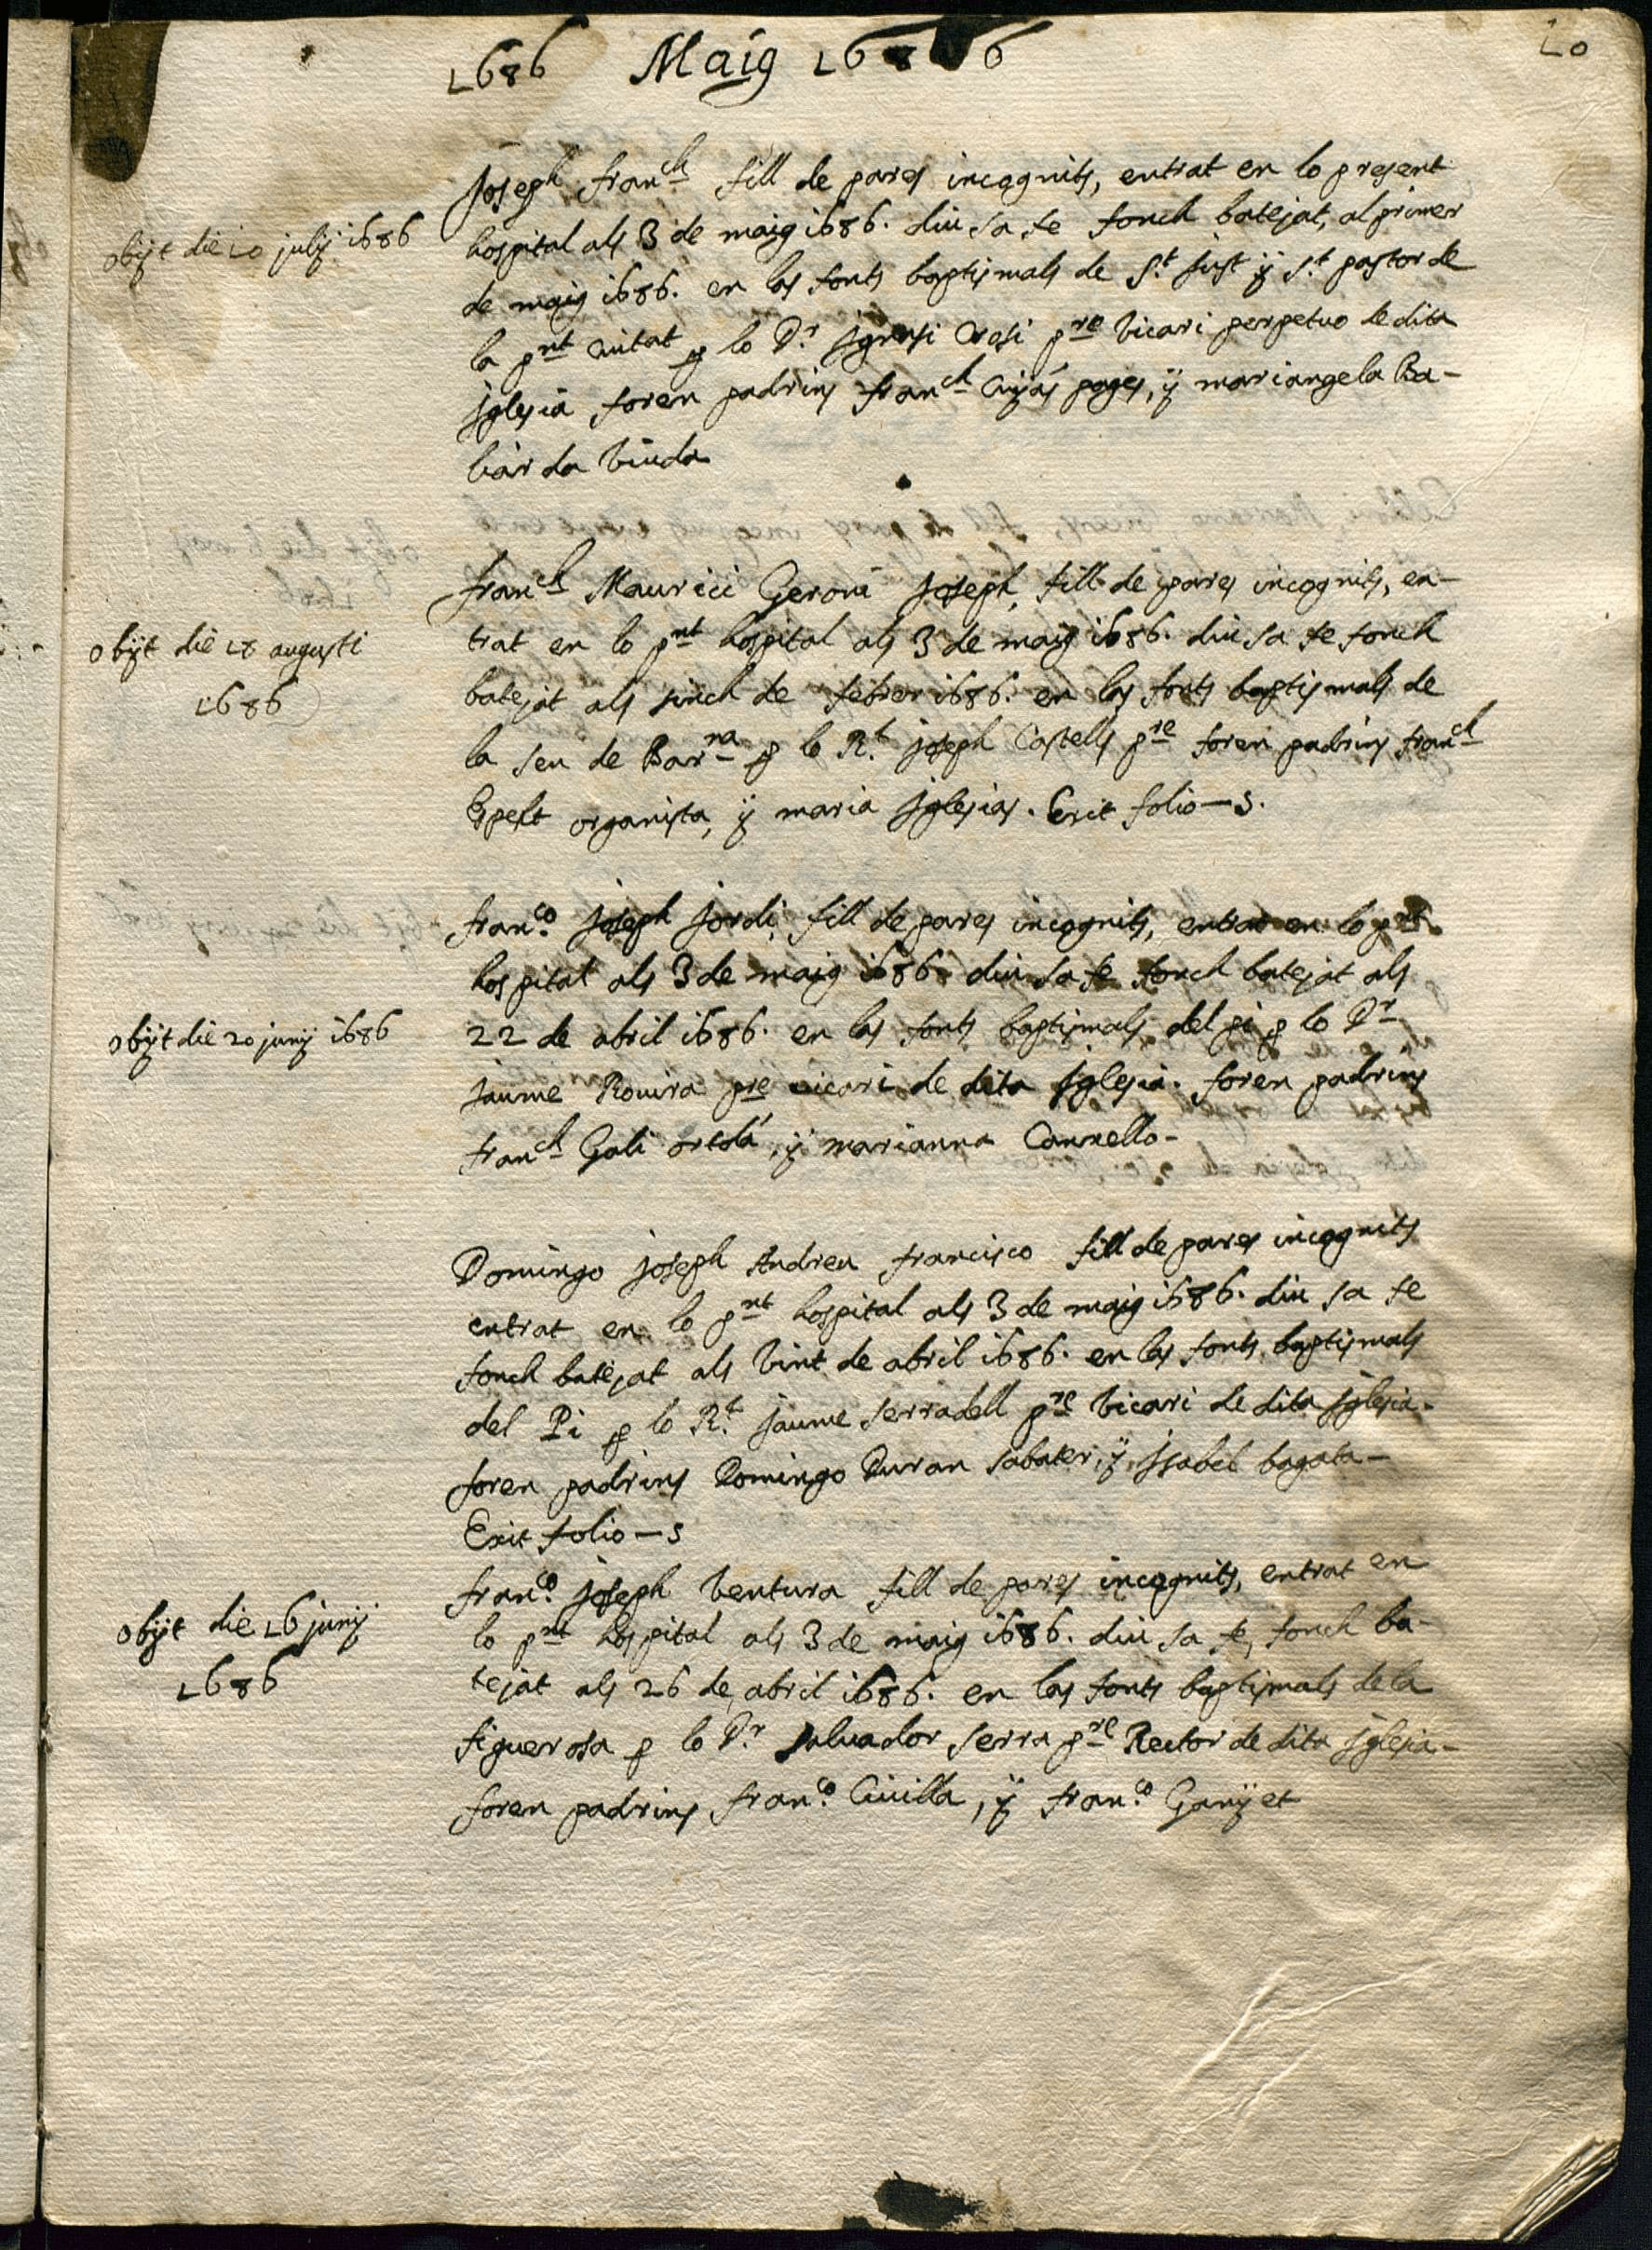 1686 Maig 1686
10
Joseph Franch fill de pares incognits, entrat en lo present
obijt die 10 julij 1686
hospital als 3 de maig 1686. diu sa fe fonch batejat, al primer
de maig 1686. en las fonts baptismals de St. Just ÿ St. pastor de
la pnt Ciutat p lo Dr. Ignasi pre Vicari perpetuo de dita
Iglesia foren padrins Franch Cuyás pages, ÿ mariangela Ba-
barda Viuda
Franch Maurici Geroni Joseph, fill de pares incognits, en-
obijt die 18 augusti
trat en lo pnt hospital als 3 de maig 1686. diu sa fe fonch
1686
batejat als sinch de febrer 1686. en las fonts baptismals de
la Seu de Barna p lo Rt. Joseph Castells pre foren padrins Franch
Espelt organista, ÿ maria Iglesias. Exit folio - 5.
Franco. Joseph Jordi, fill de pares incognits, entrat en lo pnt
hospital als 3 de maig 1686. diu sa fe fonch batejat als
obijt die 20 junij 1686
22 de abril 1686. en las fonts baptismals del pi p lo Dr
Jaume Rovira pre vicari de dita Iglesia. foren padrins
Franch Gali ortolá, ÿ marianna
Domingo Joseph Andreu Francisco fill de pares incognits
entrat en lo pnt hospital als 3 de maig 1686. diu sa fe
fonch batejat als Vint de abril 1686. en las fonts baptismals
del Pi p lo Rt. Jaume Serradell pre Vicari de dita Iglesia.
foren padrins Domingo Duran Sabater, ÿ Isabel bagata-
Exit folio - 5
Franco. Joseph Ventura fill de pares incognits, entrat en
obijt die 16 junij
lo pnt hospital als 3 de maig 1686. diu sa fe, fonch ba-
1686
tejat als 26 de abril 1686. en las fonts baptismals de la
figuerosa p lo Dr. Salvador Serra pre Rector de dita Iglesia-
foren padrins Franco. Civilla, ÿ Franco. Ganÿet